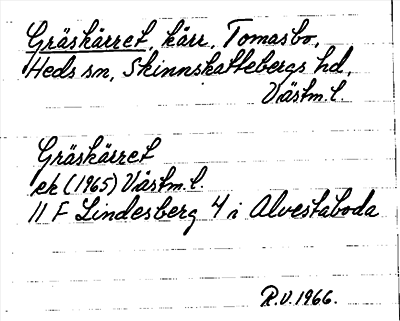 Gräskärret, kärr, Tomasbo,
Heds sn, Skinnskattebergs hd,
Västm. l.
Gräskärret
ek (1965) Västm. l.
11 F Lindesberg 4 i Alvestaboda
R.V. 1966.